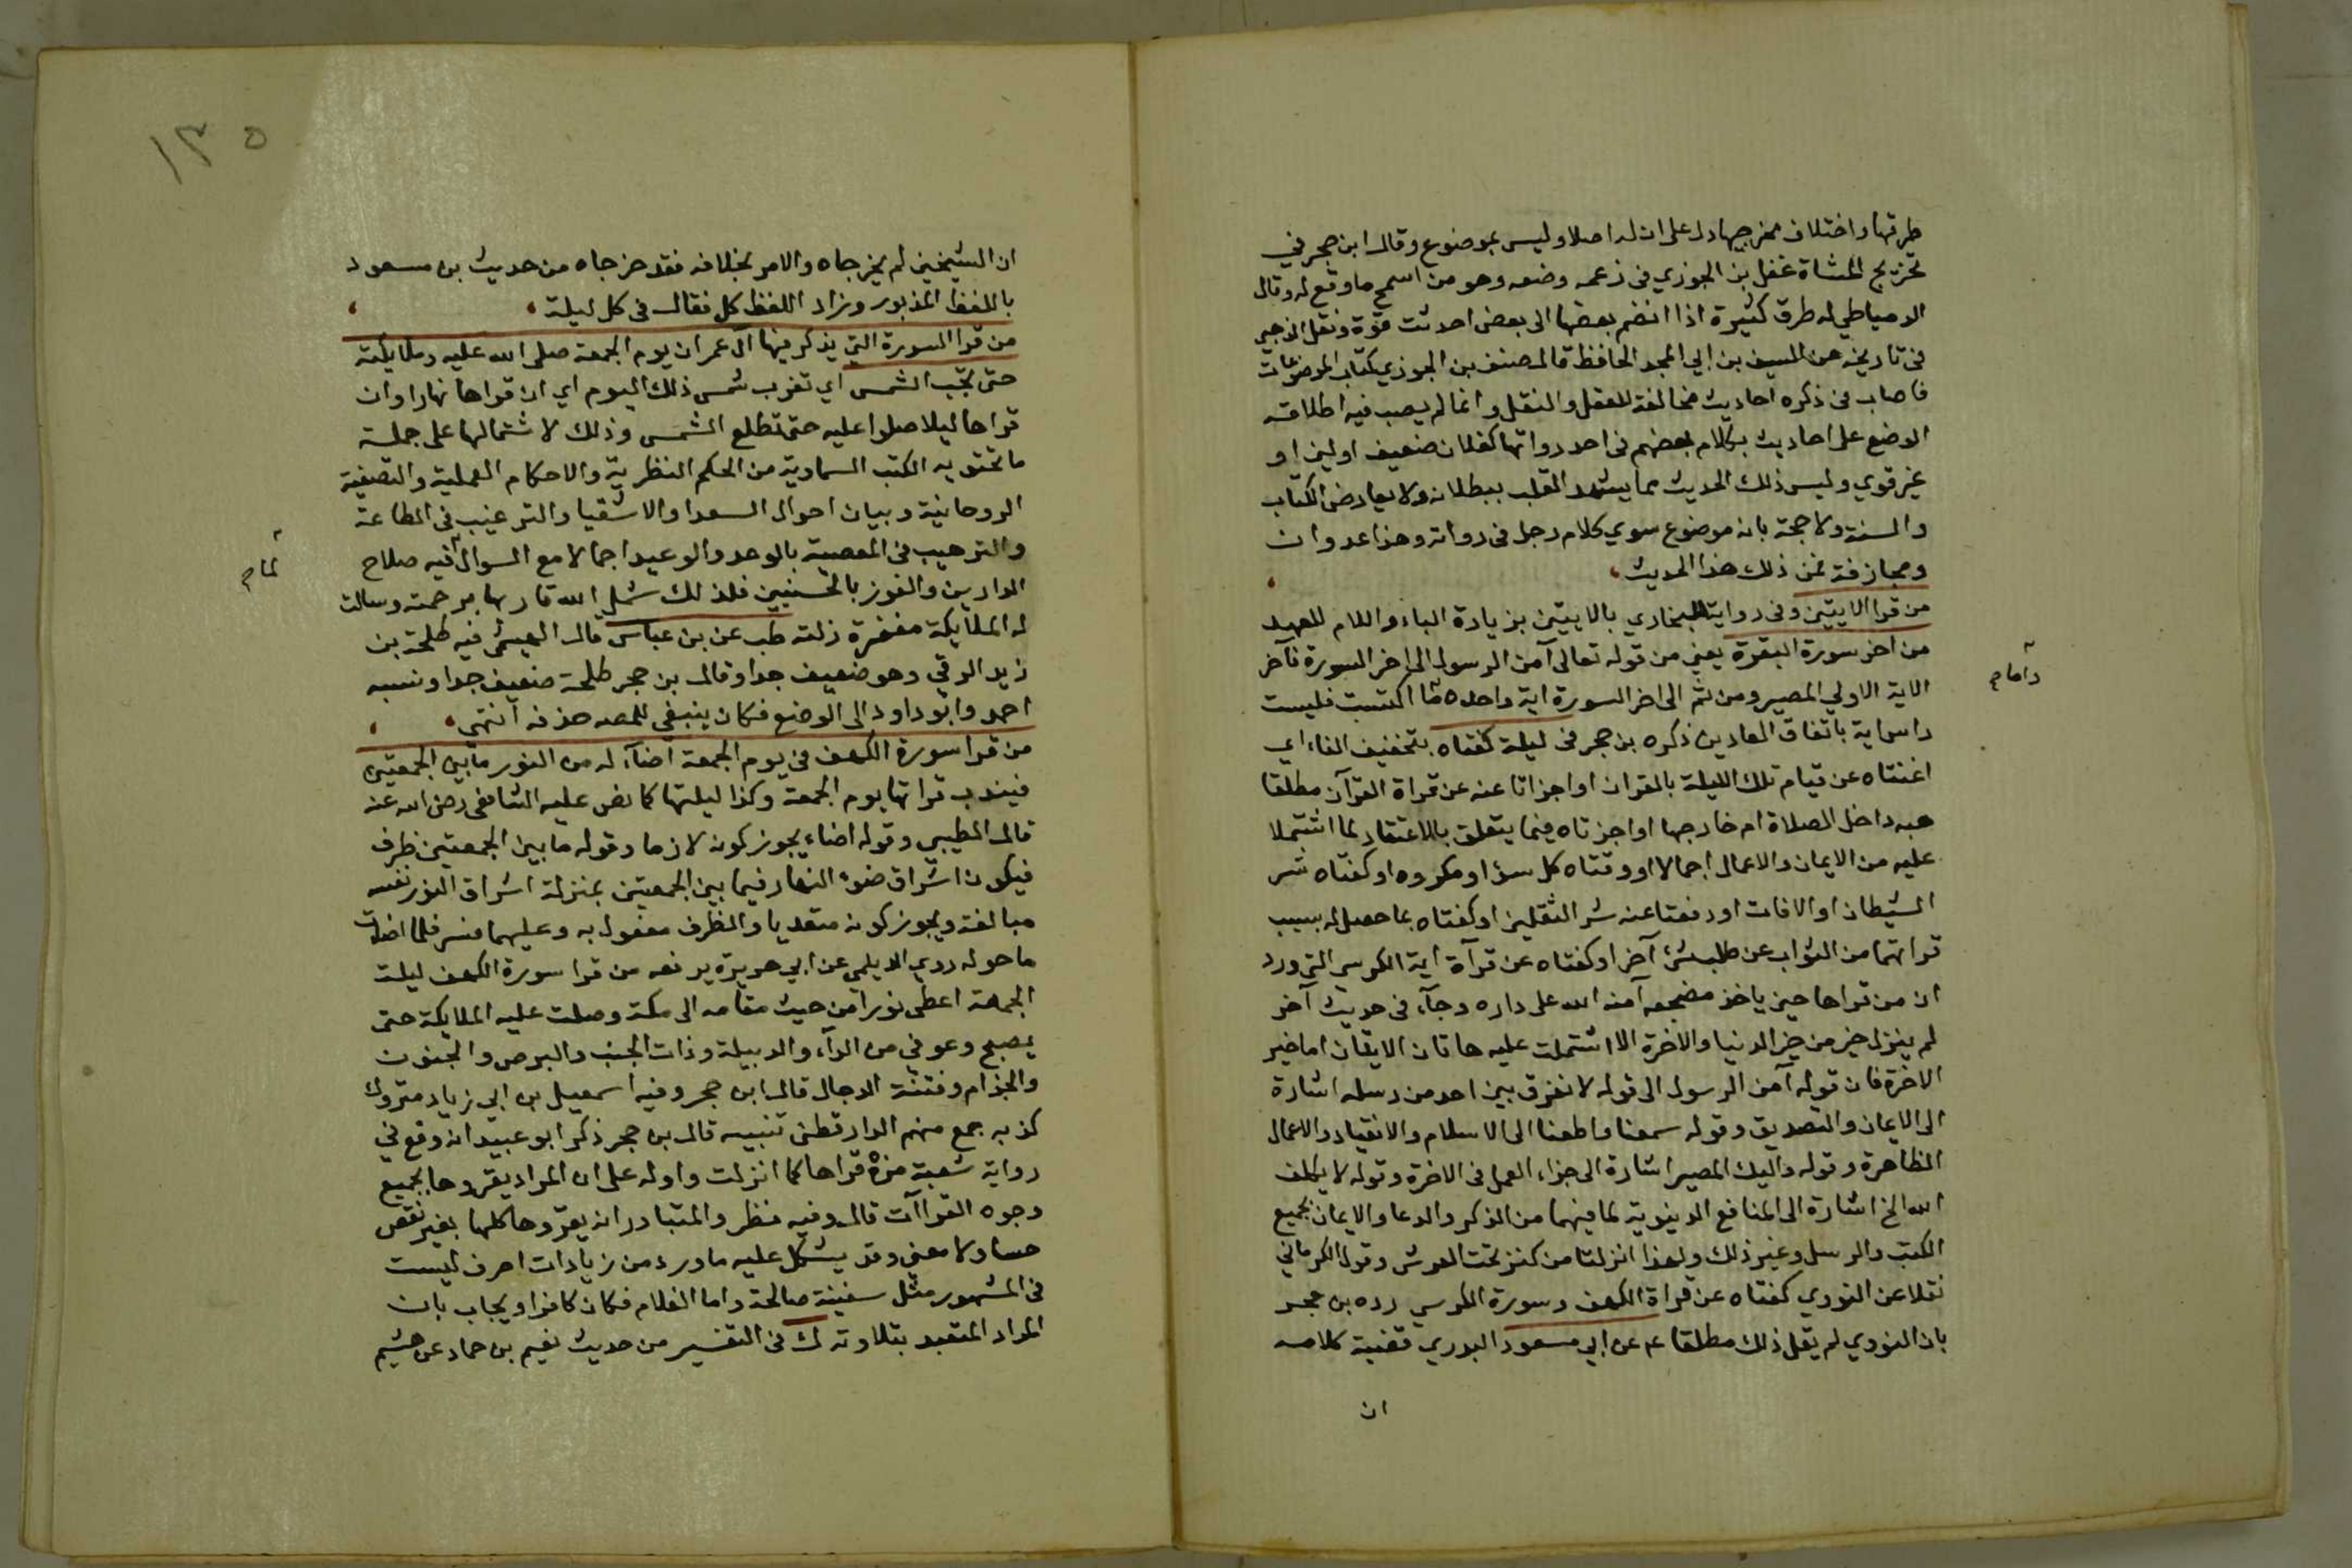 طرقها واختلاف مخرجيها دل على ان له اصلا وليس بموضوع وقال ابن حجر في
تخريج المشاة غفل بن الجوزي فى زعمه وضعه وهو من اسمج ما وقع له وقال
الدمياطي له طرق كثيرة اذا انضم بعضها الى بعض احدثت قوة ونقل الذهبي
فى تاريخه عن السيف بن ابي المجد الحافظ قال صنف بن الجوزي كتاب الموضوعات
فاصاب فى ذكره احاديث مخالفة للعقل والنقل وانما لم يصب فيه اطلاقه
الوضع على احاديث بكلام بعضهم فى احد رواتها كفلان ضعيف او لين او
غير قوي وليس ذلك الحديث مما يشهد القلب ببطلانه ولا يعارض الكتاب
والسنة ولا حجة بانه موضوع سوي كلام رجل فى رواته وهذا عدوان
ومجازفة فمن ذلك هذا الحديث
من قرا الايتين وفى رواية للبخاري بالايتين بزيادة الباء واللام للعهد
من اخر سورة البقرة يعني من قوله تعالى آمن الرسول الى اخر السورة فآخر
الاية الاولي المصير ومن ثم الى اخر السورة اية واحده وأما ما اكتسبت فليست
راس اية باتفاق العادين ذكره بن حجر فى ليلة كفتاه بتخفيف الفاء اي
اغنتاه عن قيام تلك الليلة بالقران او اجزاتا عنه عن قراة القرآن مطلقا
هبه داخل الصلاة ام خارجها او اجزتاه فيما يتعلق بالاعتقاد لما اشتملا
عليه من الايمان والاعمال اجمالا او وقتاه كل سؤ او مكروه او كفتاه شر
الشيطان او الافات او دفعتا عنه شر الثقلين او كفتاه بما حصل له بسبب
قراتهما من الثواب عن طلب شئ آخر او كفتاه عن قرآة اية الكرسي التي ورد
ان من قراها حين ياخذ مضجعه آمنه الله على داره وجآء فى حديث آخر
لم ينزل خير من خير الدنيا والاخرة الا اشتملت عليه هاتان الايتان اما خير
الاخرة فان قوله آمن الرسول الى قوله لا نفرق بين احد من رسله اشارة
الى الايمان والتصديق وقوله سمعنا واطعنا الى الاسلام والانقياد والاعمال
الظاهرة وقوله واليك المصير اشارة الى جزاء العمل فى الاخرة وقوله لا يكلف
الله الخ اشارة الى المنافع الدنيوية لما فيهما من الذكر والدعا والايمان بجميع
الكتب والرسل وغير ذلك ولهذا انزلتا من كنز تحت العرش وقول الكرماني
نقلا عن النووي كفتاه عن قراة الكهف وسورة الكرسي رده بن حجر
بان النووي لم يقل ذلك مطلقا عن ابي مسعود البدري قضية كلامه
ان
١٣٥
ان الشيخين لم يخرجاه والامر بخلافه فقد خرجاه من حديث بن مسعود
باللفظ المذبور وزاد اللفظ كل فقال فى كل ليلة
من قرا السورة التي يذكر فيها آل عمران يوم الجمعة صلى الله عليه وملايكته
حتى تجب الشمس اي تغرب شمس ذلك اليوم اي ان قراها نهارا وان
قراها ليلا صلوا عليه حتى تطلع الشمس وذلك لاشتمالها على جملة
ما تحتويه الكتب السماوية من الحكم النظرية والاحكام العملية والتصفية
الروحانية وبيان احوال السعدا والاشقيا والترغيب فى الطاعة
والترهيب فى المعصية بالوعد والوعيد اجمالا مع السوال لما فيه صلاح
الدارين والفوز بالحسنيين فلذلك شمل الله قاريها برحمته وسالت
له الملايكة مغفرة زلته طب عن بن عباس قال الهيثمى فيه طلحة بن
زيد الرقي وهو ضعيف جدا وقال بن حجر طلحة ضعيف جدا ونسبه
احمد وابو داود الى الوضع فكان ينبغي للمصه حذفه انتهى
من قرا سورة الكهف فى يوم الجمعة اضآء له من النور ما بين الجمعتين
فيندب قراتها يوم الجمعة وكذا ليلتها كما نص عليه الشافعى رضى الله عنه
قال الطيبي وقوله اضاء يجوز كونه لازما وقوله ما بين الجمعتين ظرف
فيكون اشراق ضوء النهار فيما بين الجمعتين بمنزلة اشراق النور نفسه
مبالغة ويجوز كونه متعديا والظرف مفعول به وعليهما فسر فلما اضات
ما حوله روي الديلمى عن ابي هريرة يرفعه من قرا سورة الكهف ليلة
الجمعة اعطى نورا من حيث مقامه الى مكة وصلت عليه الملايكة حتى
يصبح وعوفي من الدآء والدبيلة وذات الجنب والبرص والجنون
والجذام وفتنة الدجال قال ابن حجر وفيه اسمعيل بن ابي زياد متروك
كذبه جمع منهم الدارقطنى تنبيه قال بن حجر ذكر ابو عبيد انه وقع في
رواية شعبة من قراها كما انزلت واوله على ان المراد يقروها بجميع
وجوه القراآت قال وفيه نظر والمتبادر انه يقروها كلها بغير نقص
حسا ولا معنى وقد يشكل عليه ما ورد من زيادات احرف ليست
فى المشهور مثل سفينة صالحة واما الغلام فكان كافرا ويجاب بان
المراد المتعبد بتلاوته ك فى التفسير من حديث نعيم بن حماد عن هشيم